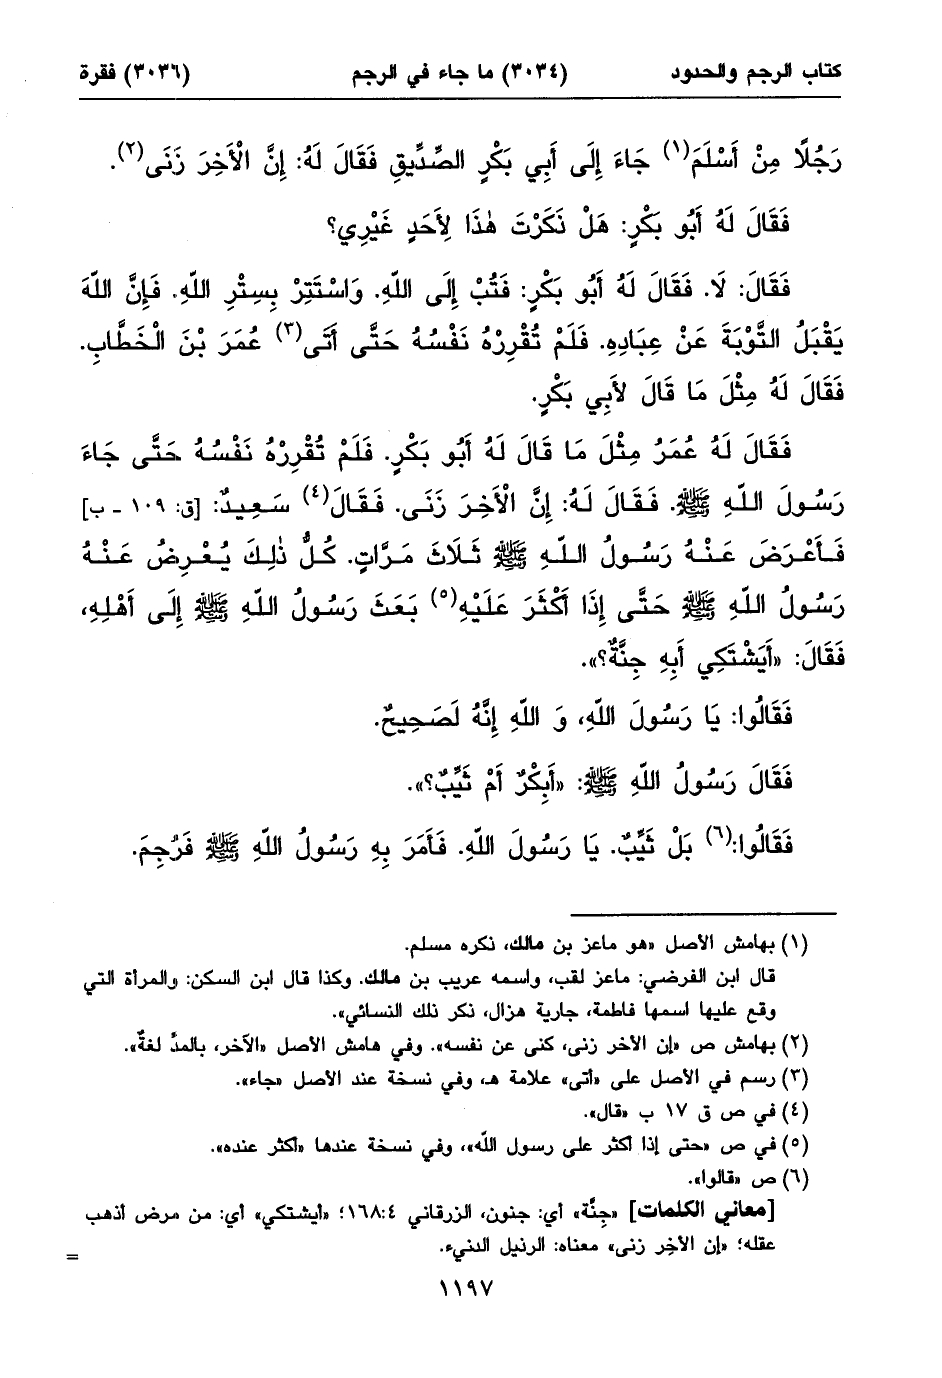 كتاب الرجم والحدود (٣٠٣٤) ما جاء في الرجم (٣٠٣٦) فقرة
رَجُلًا مِنْ أَسْلَمَ(١) جَاءَ إِلَى أَبِي بَكْرٍ الصِّدِّيقِ فَقَالَ لَهُ: إِنَّ الْأَخِرَ زَنَى(٢).
فَقَالَ لَهُ أَبُو بَكْرٍ: هَلْ ذَكَرْتَ هٰذَا لِأَحَدٍ غَيْرِي؟
فَقَالَ: لَا. فَقَالَ لَهُ أَبُو بَكْرٍ: فَتُبْ إِلَى اللّهِ. وَاسْتَتِرْ بِسِتْرِ اللّهِ. فَإِنَّ اللّهَ
يَقْبَلُ التَّوْبَةَ عَنْ عِبَادِهِ. فَلَمْ تُقْرِرْهُ نَفْسُهُ حَتَّى أَتَى(٣) عُمَرَ بْنَ الْخَطَّابِ.
فَقَالَ لَهُ مِثْلَ مَا قَالَ لأَبِي بَكْرٍ.
فَقَالَ لَهُ عُمَرُ مِثْلَ مَا قَالَ لَهُ أَبُو بَكْرٍ. فَلَمْ تُقْرِرْهُ نَفْسُهُ حَتَّى جَاءَ
رَسُولَ اللّهِ ﷺ. فَقَالَ لَهُ: إِنَّ الْأَخِرَ زَنَى. فَقَالَ(٤) سَعِيدٌ: [ق: ١٠٩ - ب]
فَأَعْرَضَ عَنْهُ رَسُولُ اللّهِ ﷺ ثَلَاثَ مَرَّاتٍ. كُلُّ ذٰلِكَ يُعْرِضُ عَنْهُ
رَسُولُ اللّهِ ﷺ حَتَّى إِذَا أَكْثَرَ عَلَيْهِ(٥) بَعَثَ رَسُولُ اللّهِ ﷺ إِلَى أَهْلِهِ،
فَقَالَ: «أَيَشْتَكِي أَبِهِ جِنَّةٌ؟».
فَقَالُوا: يَا رَسُولَ اللّهِ، وَ اللّهِ إِنَّهُ لَصَحِيحٌ.
فَقَالَ رَسُولُ اللّهِ ﷺ: «أَبِكْرٌ أَمْ ثَيِّبٌ؟».
فَقَالُوا:(٦) بَلْ ثَيِّبٌ. يَا رَسُولَ اللّهِ. فَأَمَرَ بِهِ رَسُولُ اللّهِ ﷺ فَرُجِمَ.
(١) بهامش الأصل «هو ماعز بن مالك، ذكره مسلم.
قال ابن الفرضي: ماعز لقب، واسمه عريب بن مالك. وكذا قال ابن السكن: والمرأة التي
وقع عليها اسمها فاطمة، جارية هزال، ذكر ذلك النسائي».
(٢) بهامش ص «إن الأخر زنى، كنى عن نفسه». وفي هامش الأصل «الآخر، بالمدِّ لغةٌ».
(٣) رسم في الأصل على «أتى» علامة هـ، وفي نسخة عند الأصل «جاء».
(٤) في ص ق ١٧ ب «قال».
(٥) في ص «حتى إذا أكثر على رسول اللّه»، وفي نسخة عندها «أكثر عنده».
(٦) ص «قالوا».
[معاني الكلمات] «جِنَّة» أي: جنون، الزرقاني ١٦٨:٤؛ «أيشتكي» أي: من مرض أذهب
عقله؛ «إن الأخِر زنى» معناه: الرذيل الدنيء.
=
١١٩٧